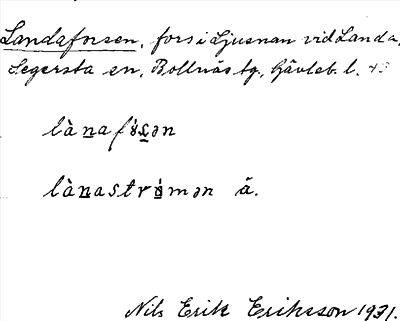 Landaforsen, fors i Ljusnan vid Landa,
Segersta sn, Bollnäs tg, Gävleb. l. 43
lànafö́sən
lànaströ́mən ä.
Nils Erik Eriksson 1931.